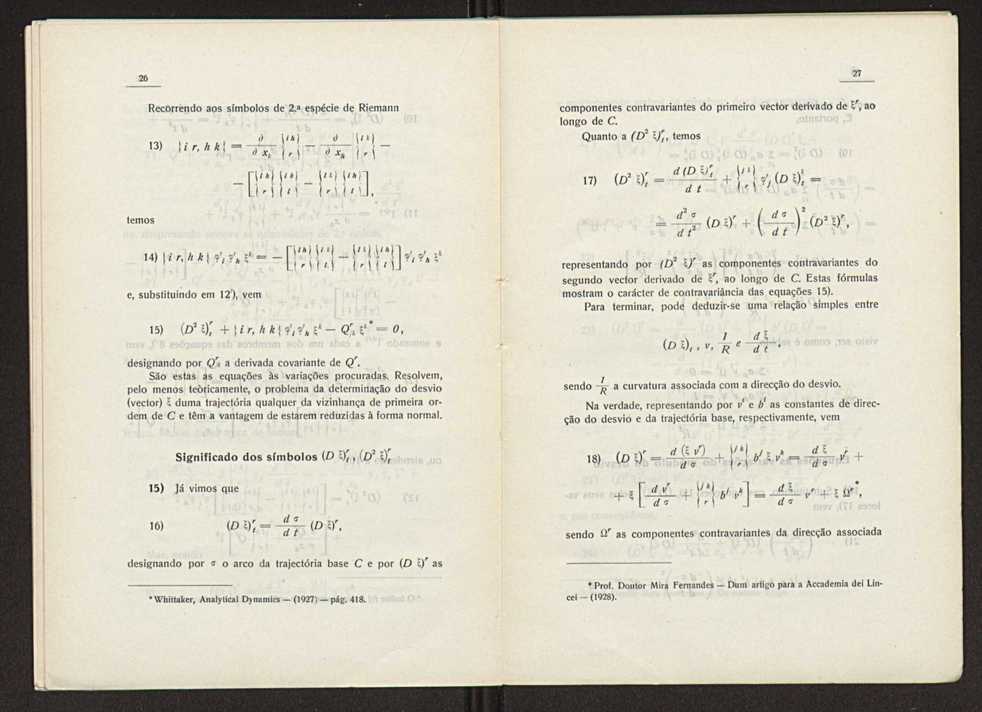 26
Recorrendo aos símbolos de 2.ª espécie de Riemann
13) {i r, h k} = ∂/∂ x_k {i h / r} − ∂/∂ x_h {i k / r} −
− [{i h / l} {l k / r} − {i k / l} {l h / r}],
temos
14) {i r, h k} φ'_i φ'_h ξ^k = − [{i h / l} {l k / r} − {i k / l} {l h / r}] φ'_i φ'_h ξ^k
e, substituindo em 12'), vem
15) (D² ξ)^r_t + {i r, h k} φ'_i φ'_h ξ^k − Q^r_{/k} ξ^k * = 0,
designando por Q^r_{/k} a derivada covariante de Q^r.
São estas as equações às variações procuradas. Resolvem,
pelo menos teòricamente, o problema da determinação do desvio
(vector) ξ duma trajectória qualquer da vizinhança de primeira or-
dem de C e têm a vantagem de estarem reduzidas à forma normal.
Significado dos símbolos (D ξ)^r_t, (D² ξ)^r_t
15) Já vimos que
16) (D ξ)^r_t = d σ/d t (D ξ)^r,
designando por σ o arco da trajectória base C e por (D ξ)^r as
* Whittaker, Analytical Dynamics — (1927) — pág. 418.
27
componentes contravariantes do primeiro vector derivado de ξ^r, ao
longo de C.
Quanto a (D² ξ)^r_t, temos
17) (D² ξ)^r_t = d (D ξ)^r_t/d t + {j k / r} φ'_j (D ξ)^k_t =
= d² σ/d t² (D ξ)^r + (d σ/d t)² (D² ξ)^r,
representando por (D² ξ)^r as componentes contravariantes do
segundo vector derivado de ξ^r, ao longo de C. Estas fórmulas
mostram o carácter de contravariância das equações 15).
Para terminar, pode deduzir-se uma relação simples entre
(D ξ)_t, v, 1/R e d ξ/d t,
sendo 1/R a curvatura associada com a direcção do desvio.
Na verdade, representando por v^i e b^i as constantes de direc-
ção do desvio e da trajectória base, respectivamente, vem
18) (D ξ)^r = d (ξ v^r)/d σ + {j k / r} b^j ξ v^k = d ξ/d σ v^r +
+ ξ [d v^r/d σ + {j k / r} b^j v^k] = d ξ/d σ v^r + ξ Ω^r *,
sendo Ω^r as componentes contravariantes da direcção associada
* Prof. Doutor Mira Fernandes — Dum artigo para a Accademia dei Lin-
cei — (1928).